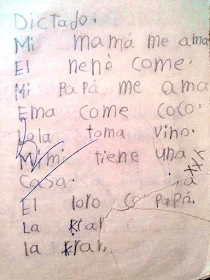 Dictado.
Mi mamá me ama
El nenò come.
Mi PaPá me ama
Ema come coco.
Lala toma vino.
Mimi tiene una
casa.
El loro PaPá.
La
la